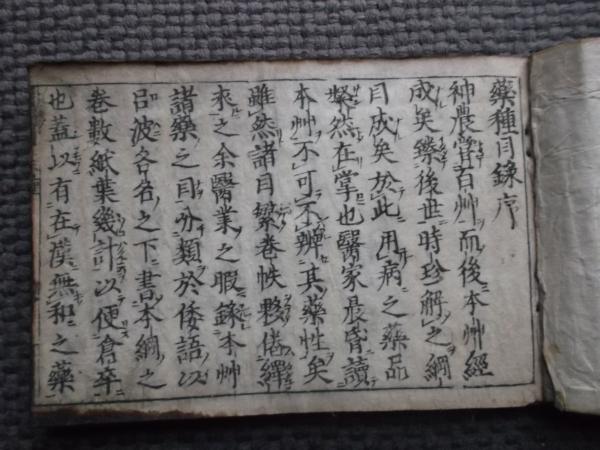 藥種目錄序
神農嘗百艸而後本艸經
成矣鎩後世時珍解之綱
目成矣於此用病之藥品
繫然在掌也醫家晨昏讀
本艸不可不辨其藥性矣
雖然諸目繁卷帙夥倦繹
來之余醫業之暇錄本艸
諸藥之目分類於倭語以
呂波各名之下書本綱之
卷數紙葉幾計以便倉卒
也蓋以有在漢無和之藥